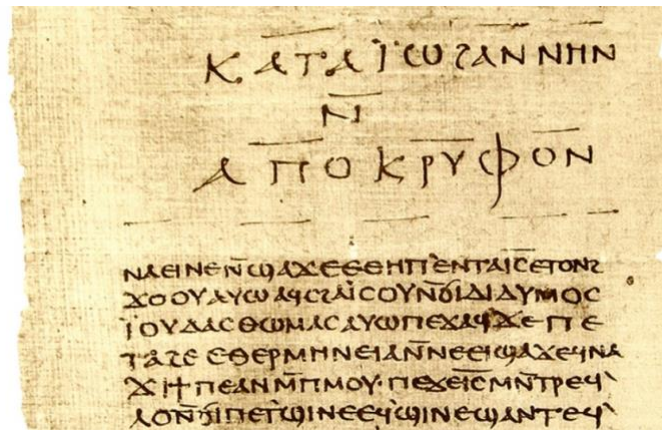 ⲕⲁⲧⲁ ⲓ̈ⲱϩⲁⲛⲛⲏⲛ
ⲛ̄
ⲁⲡⲟⲕⲣⲩⲫⲟⲛ
ⲛⲁⲉⲓ ⲛⲉ ⲛ̄ϣⲁϫⲉ ⲉⲑⲏⲡ ⲉⲛⲧⲁⲓ̅ⲥ̅ ⲉⲧⲟⲛϩ
ϫⲟⲟⲩ ⲁⲩⲱ ⲁϥⲥϩⲁⲓ̈ⲥⲟⲩ ⲛ̄ϭⲓ ⲇⲓⲇⲩⲙⲟⲥ
ⲓ̈ⲟⲩⲇⲁⲥ ⲑⲱⲙⲁⲥ ⲁⲩⲱ ⲡⲉϫⲁϥ ϫⲉ ⲡⲉ
ⲧⲁϩⲉ ⲉⲑⲉⲣⲙⲏⲛⲉⲓⲁ ⲛ̄ⲛⲉⲉⲓϣⲁϫⲉ ϥⲛⲁ
ϫⲓ ϯⲡⲉ ⲁⲛ ⲙ̄ⲡⲙⲟⲩ ⲡⲉϫⲉ ⲓ̅ⲥ̅ ⲙⲛ̄ⲧⲣⲉϥ
ⲗⲟ ⲛ̄ϭⲓ ⲡⲉⲧϣⲓⲛⲉ ⲉϥϣⲓⲛⲉ ϣⲁⲛⲧⲉϥ